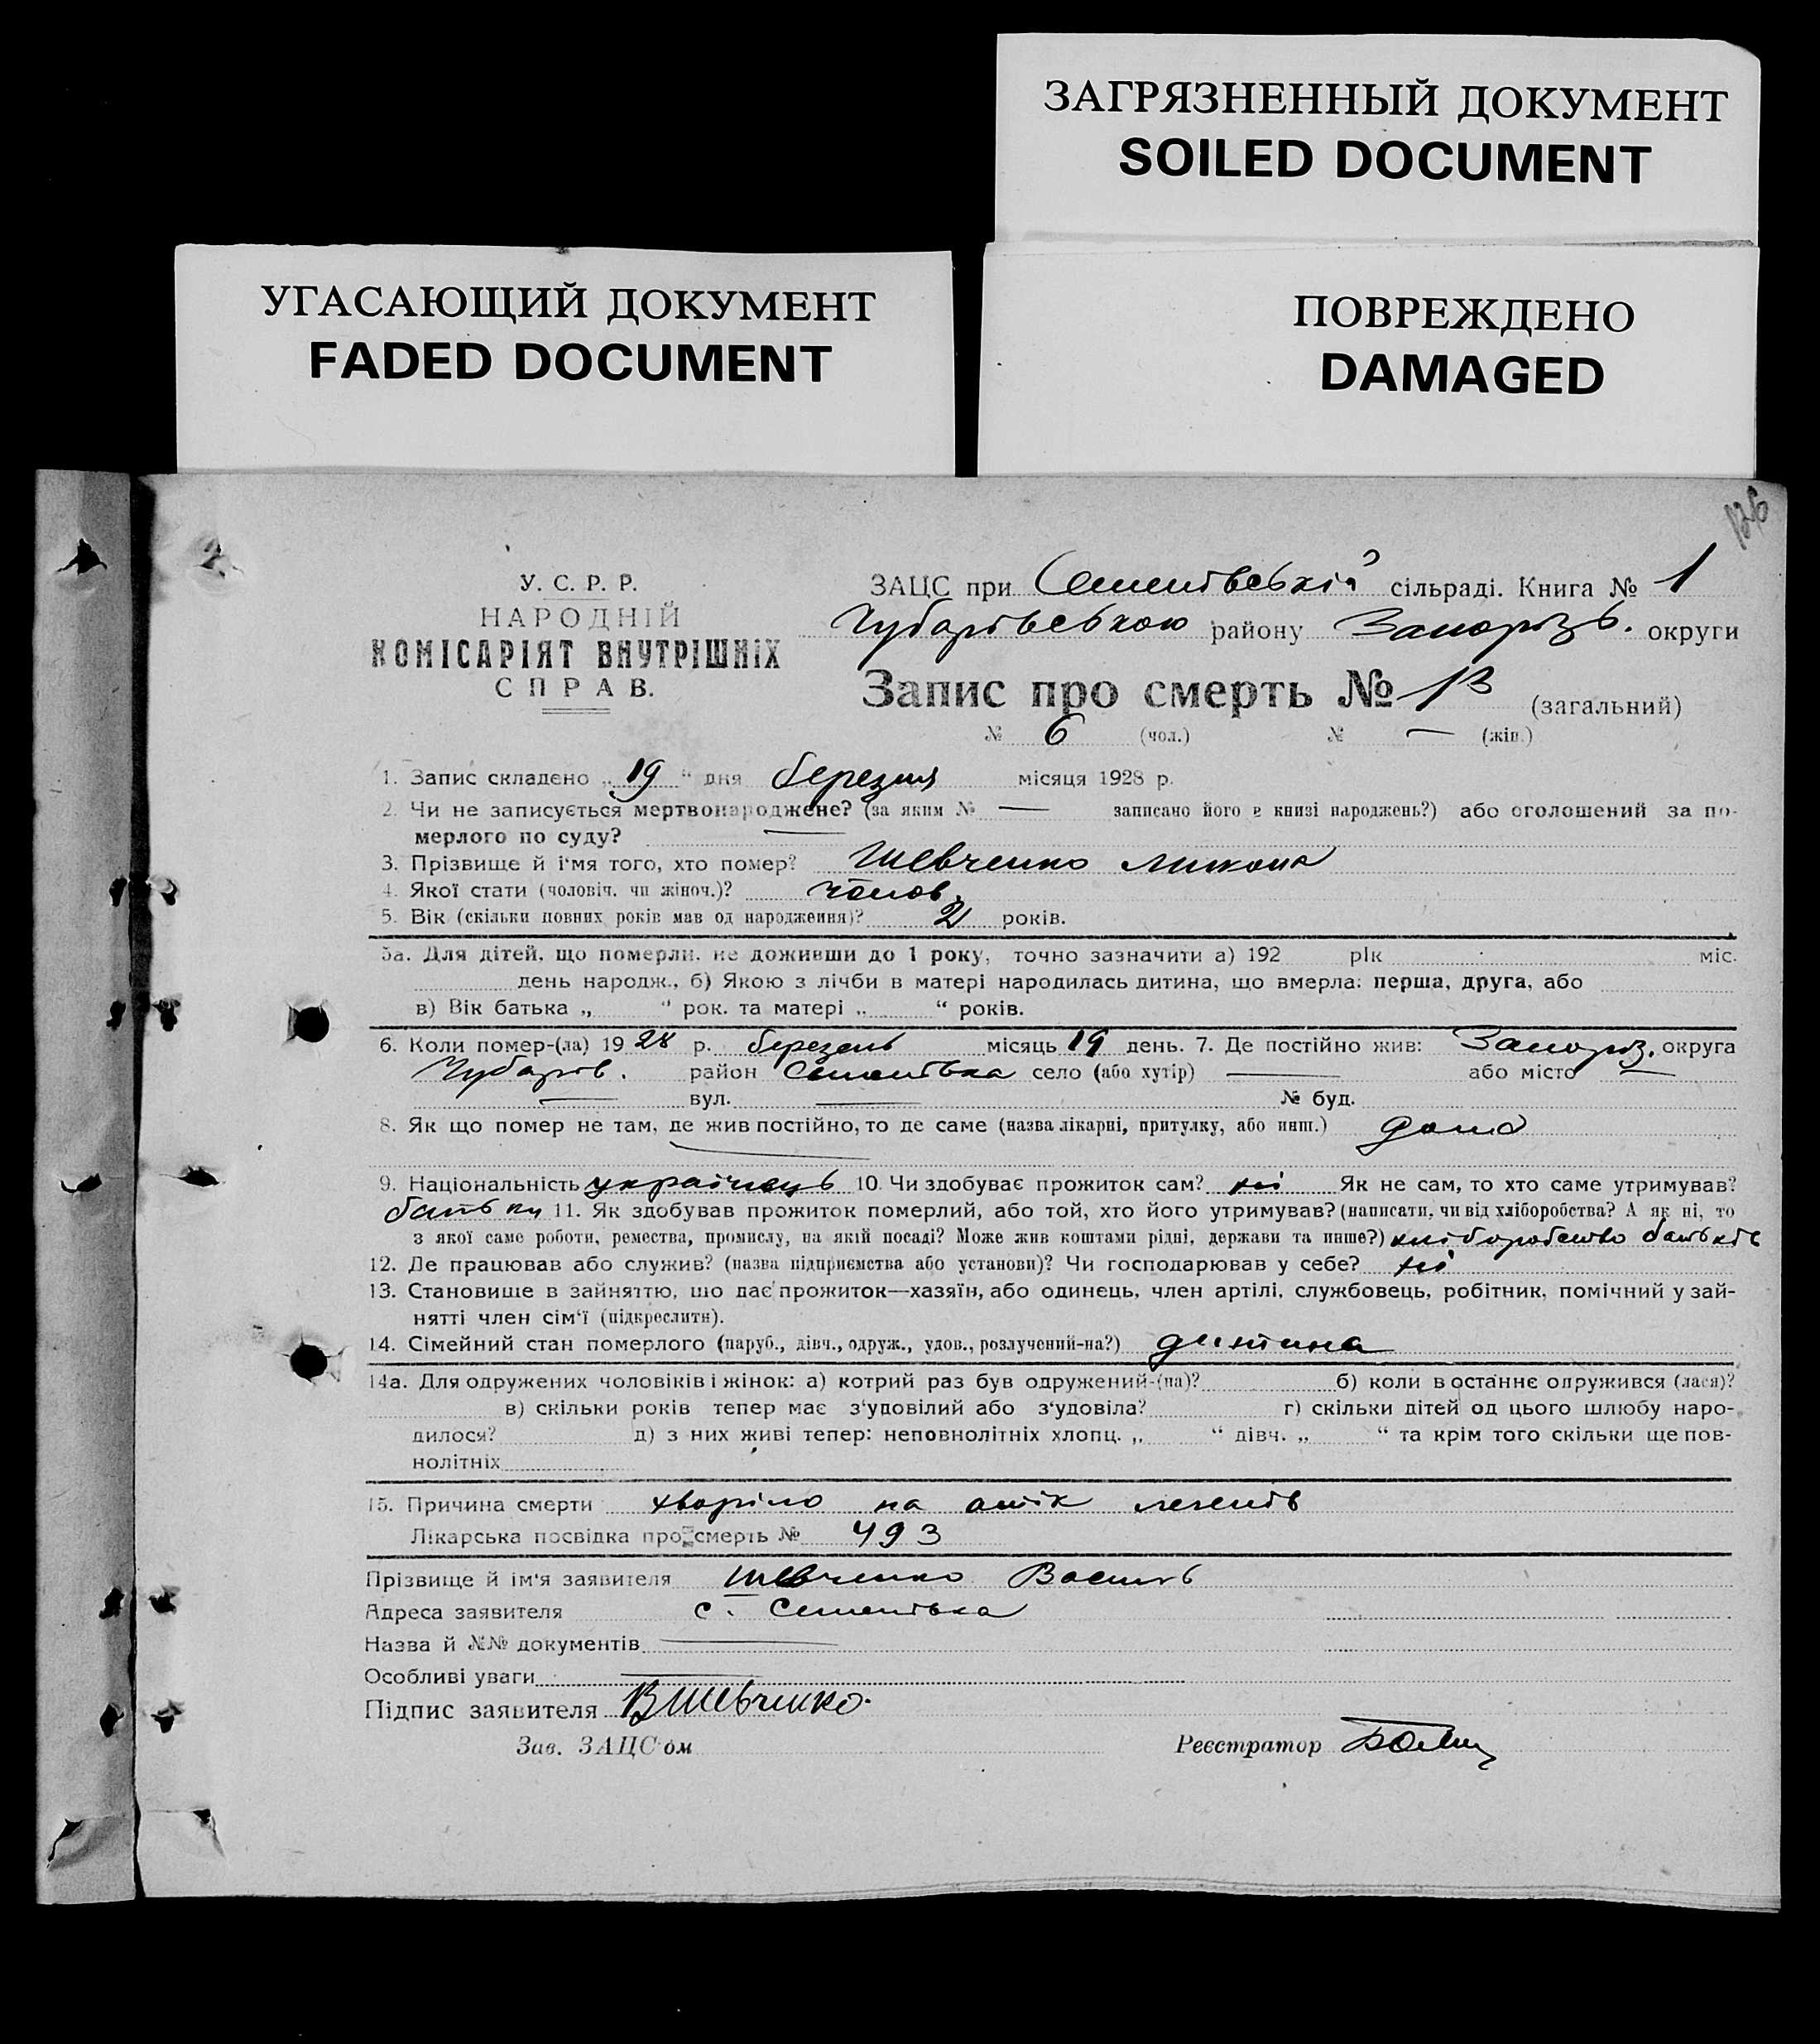 ЗАГРЯЗНЕННЫЙ ДОКУМЕНТ
SOILED DOCUMENT
УГАСАЮЩИЙ ДОКУМЕНТ
FADED DOCUMENT
ПОВРЕЖДЕНО
DAMAGED
126
У. С. Р. Р.
НАРОДНІЙ
КОМІСАРІЯТ ВНУТРІШНІХ
СПРАВ.
ЗАЦС при Семенівській сільраді. Книга № 1
Чубарівською району Запорізь. округи
Запис про смерть № 13 (загальний)
№ 6 (чол.) № — (жін.)
1. Запис складено „19“ дня березня місяця 1928 р.
2. Чи не записується мертвонароджене? (за яким № — записано його в книзі народжень?) або оголошений за по-
мерлого по суду? —
3. Прізвище й і'мя того, хто помер? Шевченко Микола
4. Якої стати (чоловіч. чи жіноч.)? чолов.
5. Вік (скільки повних років мав од народження)? 2 років.
5а. Для дітей, що померли, не доживши до 1 року, точно зазначити а) 192 рік міс.
день народж., б) Якою з лічби в матері народилась дитина, що вмерла: перша, друга, або
в) Вік батька „ “ рок. та матері „ “ років.
6. Коли помер-(ла) 1928 р. березень місяць 19 день. 7. Де постійно жив: Запоріз. округа
Чубарів. район Семенівка село (або хутір) — або місто —
— вул. — № буд.
8. Як що помер не там, де жив постійно, то де саме (назва лікарні, притулку, або инш.) дома
9. Національність українець 10. Чи здобуває прожиток сам? ні Як не сам, то хто саме утримував?
батьки 11. Як здобував прожиток померлий, або той, хто його утримував? (написати, чи від хліборобства? А як ні, то
з якої саме роботи, ремества, промислу, на якій посаді? Може жив коштами рідні, держави та инше?) хліборобство батьків
12. Де працював або служив? (назва підприємства або установи)? Чи господарював у себе? ні
13. Становище в зайняттю, що дає прожиток—хазяїн, або одинець, член артілі, службовець, робітник, помічний у зай-
нятті член сім‘ї (підкреслити).
14. Сімейний стан померлого (паруб., дівч., одруж., удов., розлучений-на?) дитина
14а. Для одружених чоловіків і жінок: а) котрий раз був одружений-(на)? б) коли в останнє одружився (лася)?
в) скільки років тепер має з‘удовілий або з‘удовіла? г) скільки дітей од цього шлюбу наро-
дилося? д) з них живі тепер: неповнолітніх хлопц. „ “ дівч. „ “ та крім того скільки ще пов-
нолітніх
15. Причина смерти хворіло на отік легенів
Лікарська посвідка про смерть № 493
Прізвище й ім‘я заявителя Шевченко Василь
Адреса заявителя с. Семенівка
Назва й №№ документів —
Особливі уваги —
Підпис заявителя В Шевченко.
Зав. ЗАЦС‘ом
Реєстратор